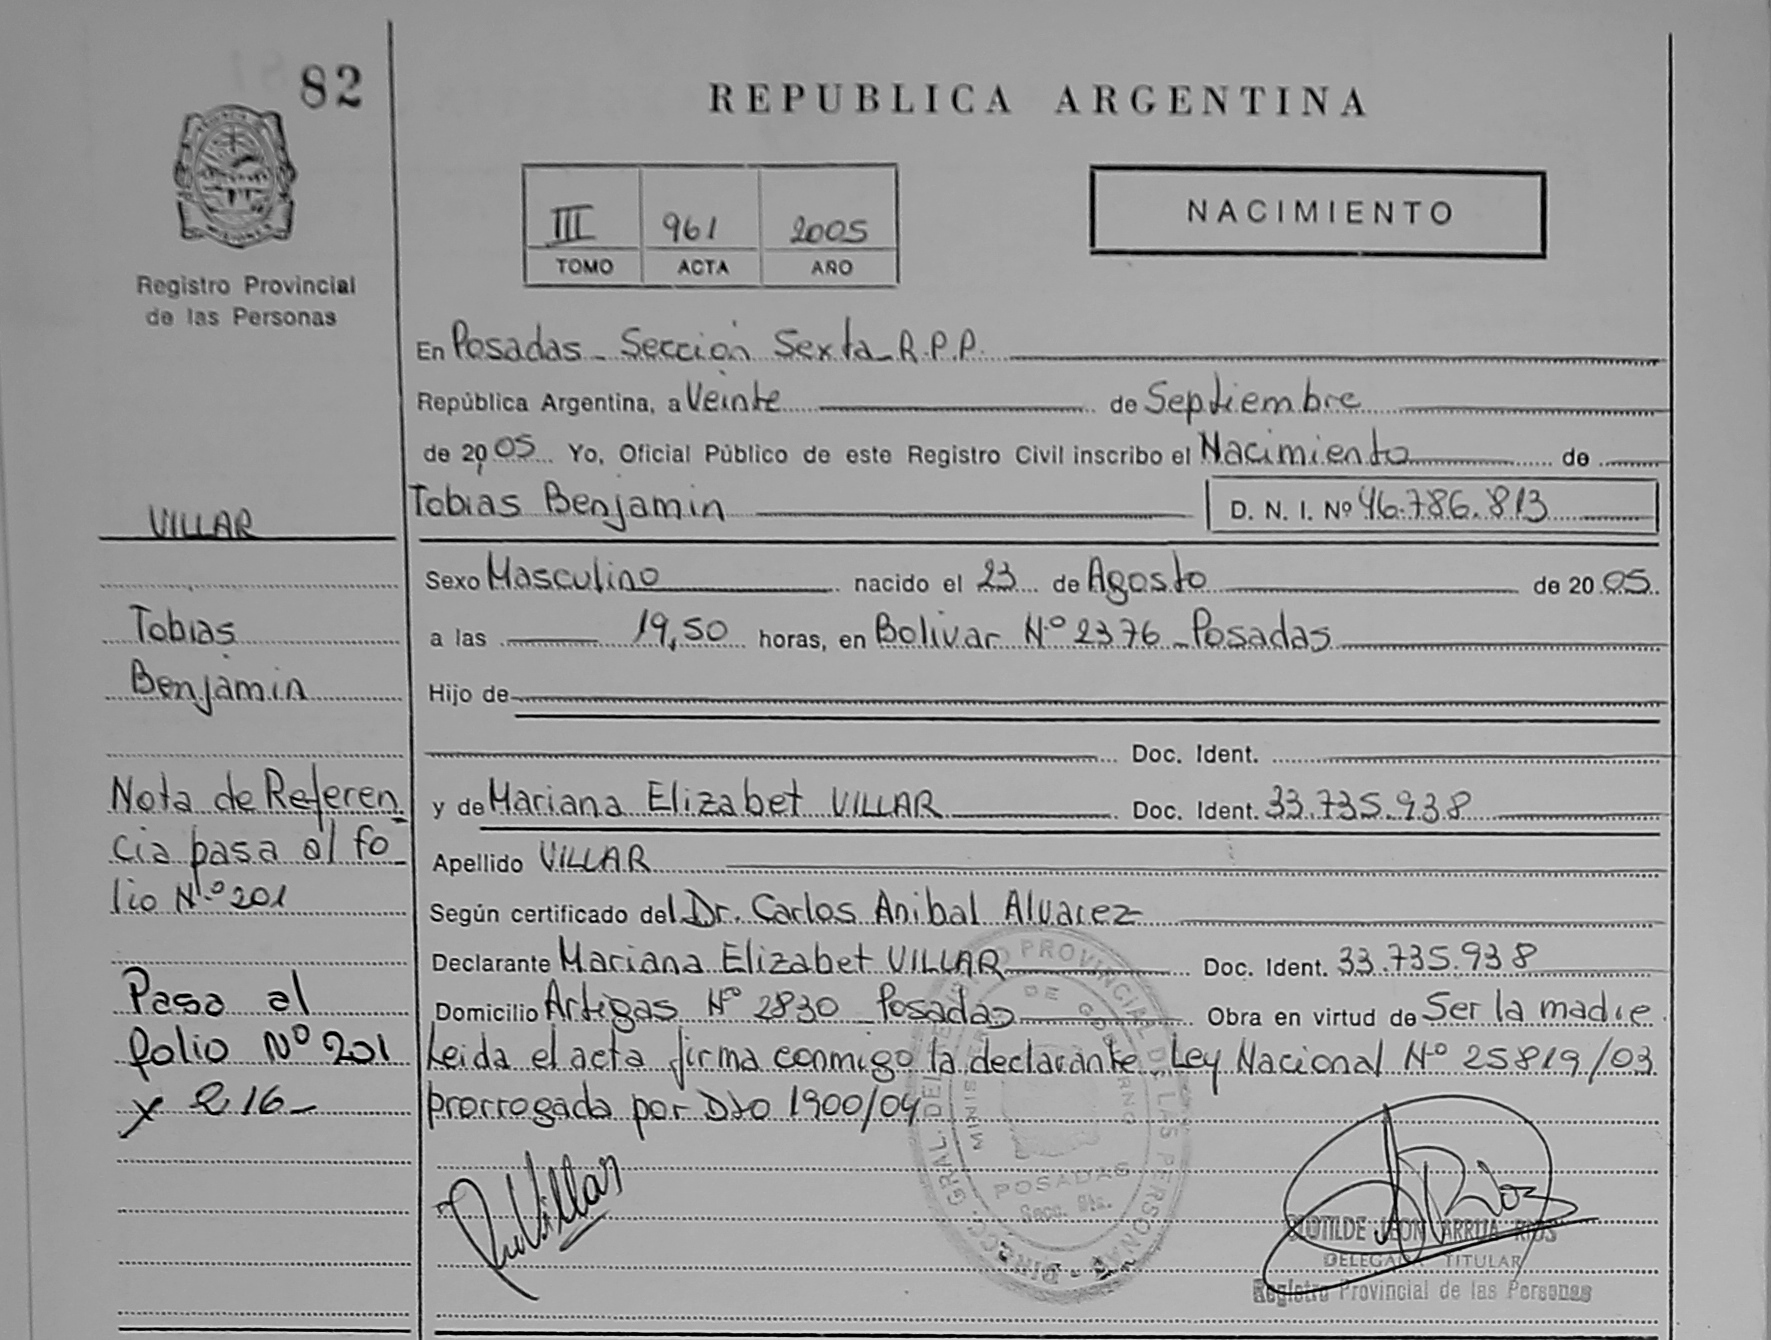 82
REPUBLICA ARGENTINA
III 961 2005
TOMO ACTA AÑO
NACIMIENTO
Registro Provincial
de las Personas
En Posadas - Sección Sexta - R.P.P.
República Argentina, a Veinte de Septiembre
de 2005 Yo, Oficial Público de este Registro Civil inscribo el Nacimiento de
Tobias Benjamin D. N. I. Nº 46.786.813
VILLAR
Sexo Masculino nacido el 23 de Agosto de 2005
Tobias
a las 19,50 horas, en Bolivar Nº 2376 - Posadas
Benjamin
Hijo de
Doc. Ident.
Nota de Referen
y de Mariana Elizabet VILLAR Doc. Ident. 33.735.938
cia pasa al fo-
Apellido VILLAR
lio Nº 201
Según certificado del Dr. Carlos Anibal Alvarez
Declarante Mariana Elizabet VILLAR Doc. Ident. 33.735.938
Pasa al
Domicilio Artigas Nº 2830 Posadas Obra en virtud de Ser la madre
folio Nº 201
Leida el acta firma conmigo la declarante. Ley Nacional Nº 25819/03
y 216-
prorrogada por Dto 1900/04
Villar
DIRECC. GRAL. DEL REGISTRO PROVINCIAL DE LAS PERSONAS
MINISTERIO DE GOBIERNO
POSADAS
Secc. 6ta.
ARios
CLOTILDE LEON ARRUA RIOS
DELEGADA TITULAR
Registro Provincial de las Personas